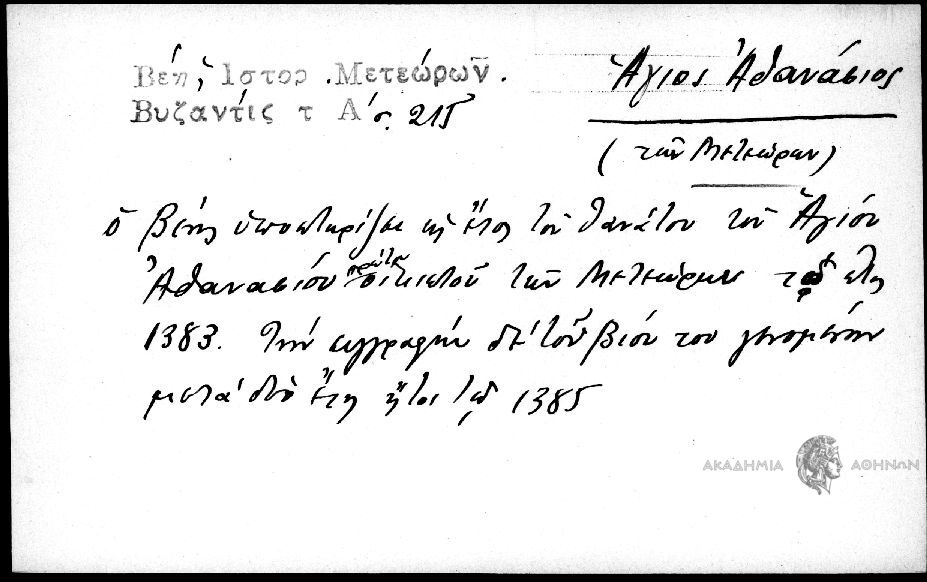 Βέη, Ιστορ. Μετεώρων.
Βυζαντίς τ Α΄ σ. 215
Ἅγιος Ἀθανάσιος
(τῶν Μετεώρων)
ὁ Βέης ὑποστηρίζει ὡς ἔτος τοῦ θανάτου τοῦ Ἁγίου
Ἀθανασίου πρώτου οἰκιστοῦ τῶν Μετεώρων τὸ ἔτος
1383. Τὴν συγγραφὴν δὲ τοῦ βίου του γενομένην
μετὰ δύο ἔτη ἤτοι τῷ 1385
ΑΚΑΔΗΜΙΑ ΑΘΗΝΩΝ